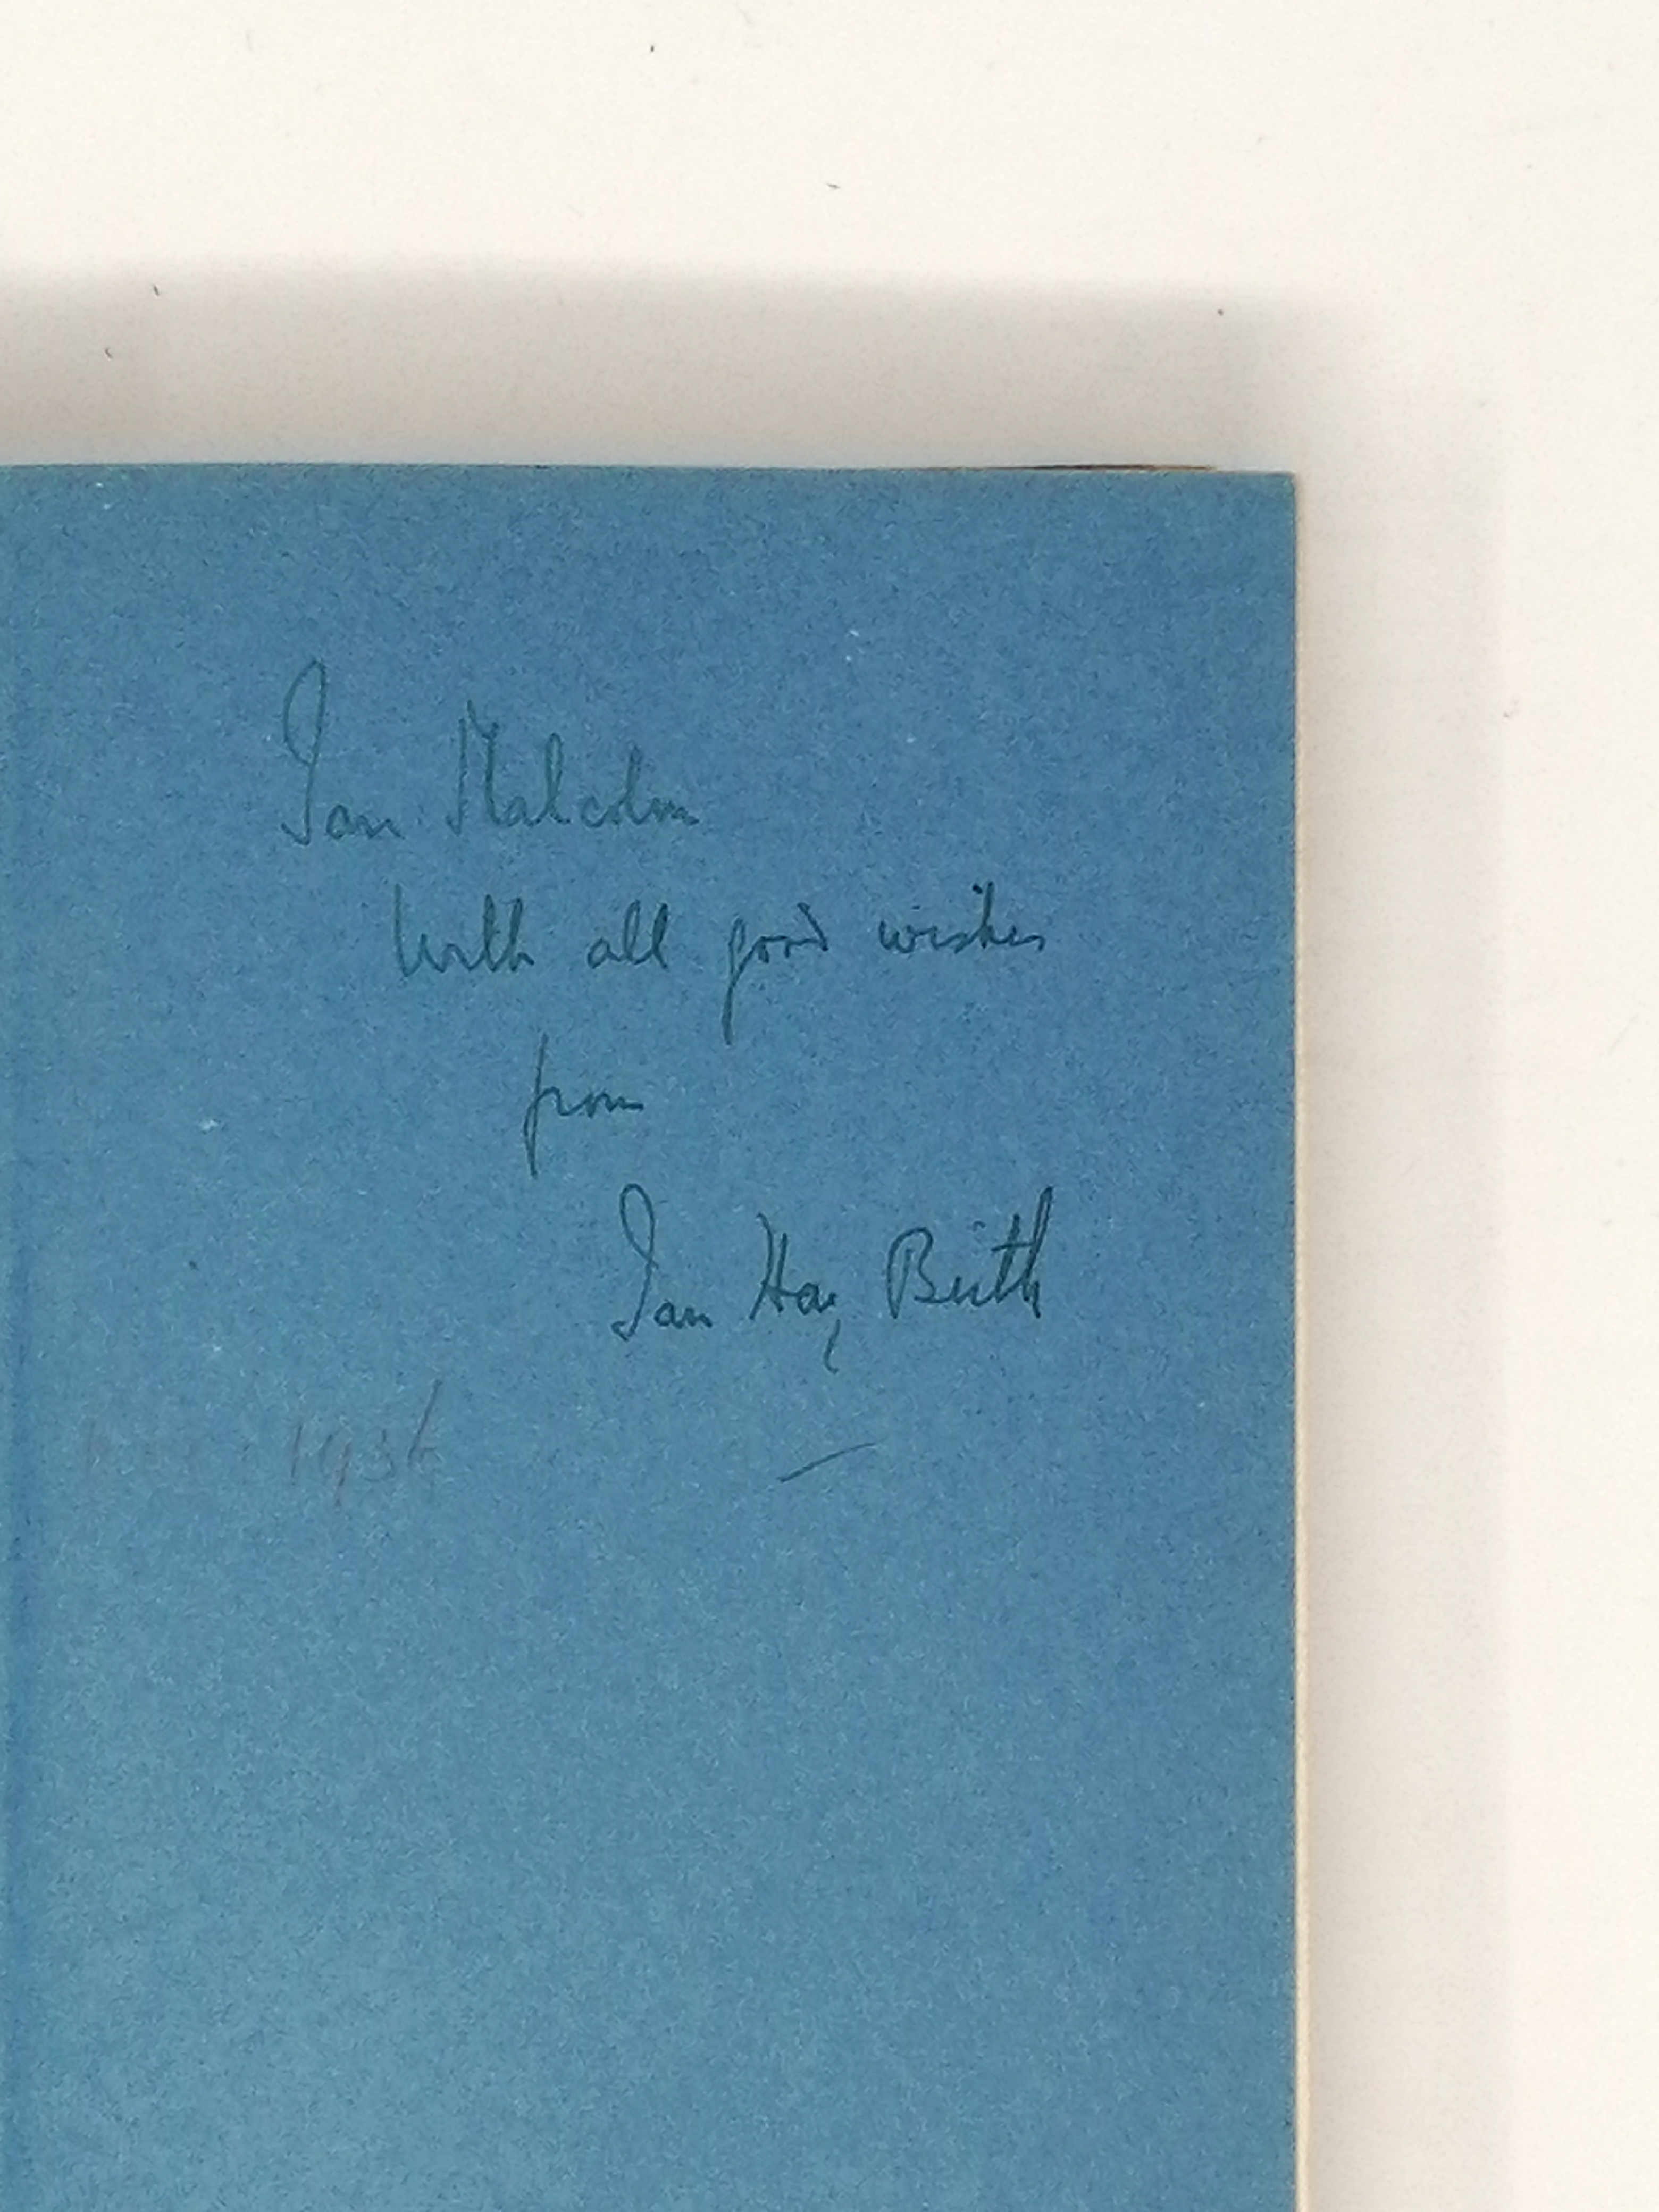 Ian Malcolm
With all good wishes
from
Ian Hay Beith
1936